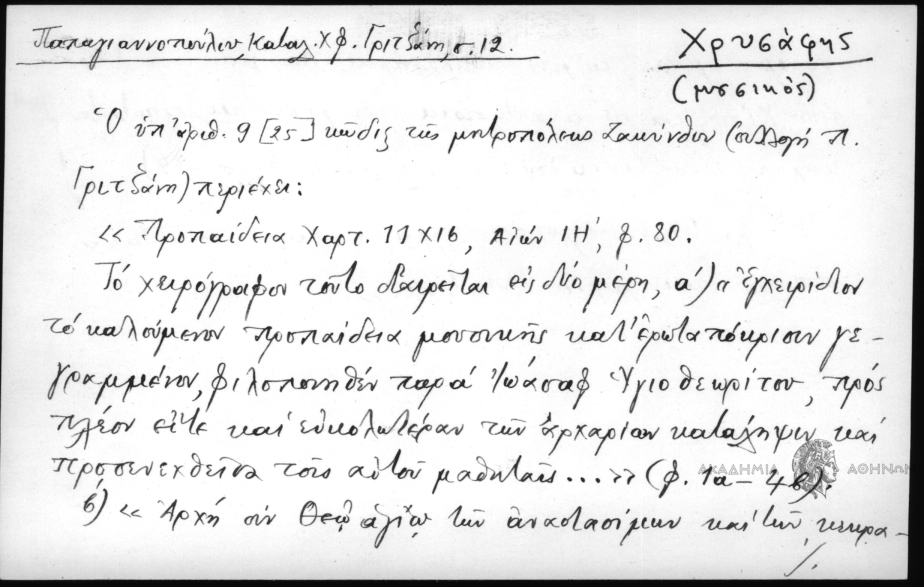 Παπαγιαννοπούλου Καταλ. Χφ. Γριτζάνη, σ. 12.
Χρυσάφης
(μουσικός)
Ὁ ὑπ' ἀριθ. 9 [25] κῶδιξ τῆς μητροπόλεως Ζακύνθου (συλλογή Π.
Γριτζάνη) περιέχει:
<< Προπαίδεια Χαρτ. 11 Χ 16, Αἰών ΙΗ', φ. 80.
Τό χειρόγραφον τοῦτο διαιρεῖται εἰς δύο μέρη, α') " Ἐγχειρίδιον
τό καλούμενον προπαίδεια μουσικῆς κατ' ἐρωταπόκρισιν γε-
γραμμένον, φιλοπονηθέν παρά Ἰωάσαφ Ἁγιοθεωρίτου, πρός
πλέον εἴτε καί εὐκολωτέραν τῶν ἀρχαρίων κατάληψιν καί
προσενεχθεῖσα τοῖς αὐτοῦ μαθηταῖς... >> (φ. 1α - 4β)
β') << Ἀρχή σύν Θεῷ ἁγίῳ τῶν ἀναστασίμων καί τῶν κεκρα-
./.
ΑΚΑΔΗΜΙΑ ΑΘΗΝΩΝ